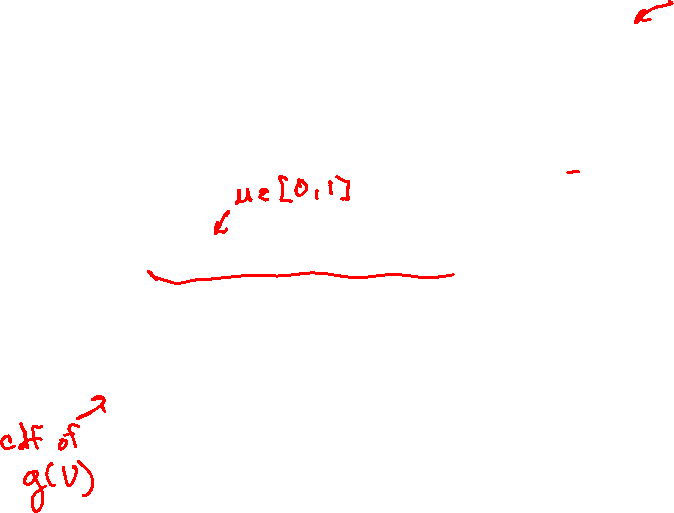 u ∈ [0,1]
cdf of
g(U)